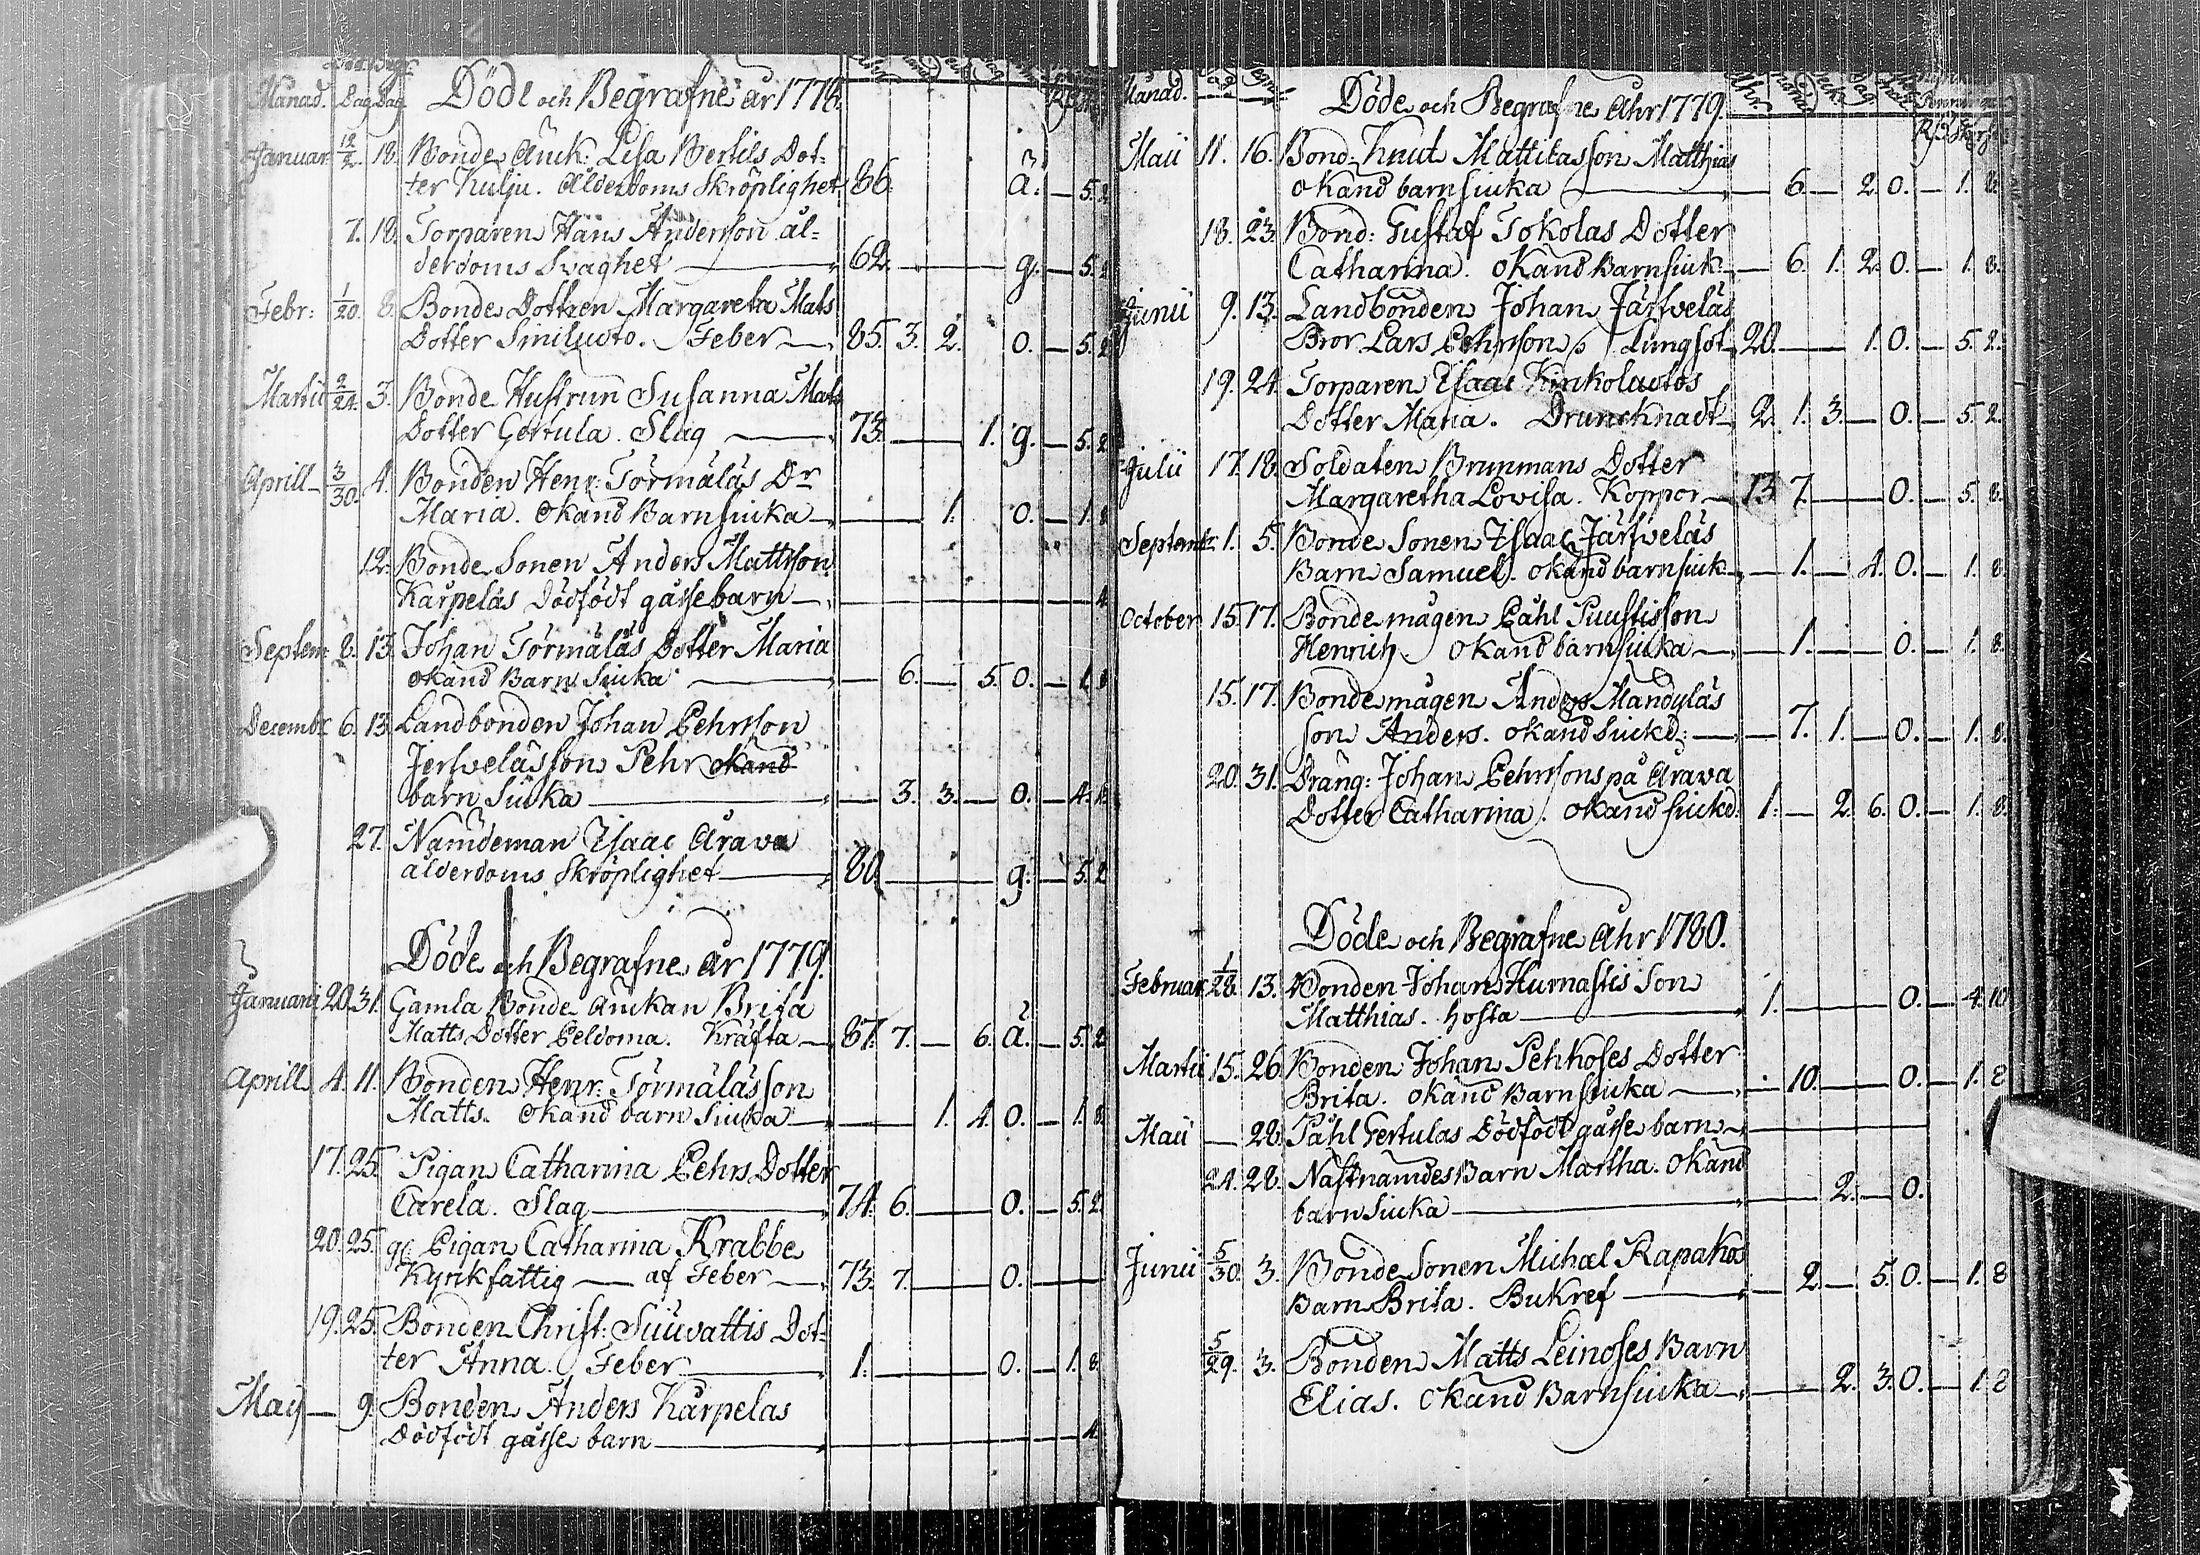 Månad. Dag Dag Döde och Begrafne år 1778.
Januar 12/2. 18. Bonde Änck: Lisa Bertils Dot-
ter Kulju. Ålderdoms Skröplighet 86. Ä. — 5. 2
7. 18. Torparen Hans Anderson ål-
derdoms Svaghet — 62. — g. — 5. 2
Febr: 1/20. 8. Bonde Dottren Margareta Mats
Dotter Siniluoto. Feber — 85. 3. 2. 0. — 5. 2
Martii 2/24. 3. Bonde Hustrun Susanna Mats
Dotter Gertula. Slag — 73. — 1. g. — 5. 2
Aprill — 3/30. 4. Bonden Henr: Törmäläs Dr
Maria. Okänd Barnsiuka — 1. 0. — 1. 8
12. Bonde Sonen Anders Mattson
Karpelas Dödfödt gåsse barn — 4
Septem: 8. 13. Johan Törmäläs Dotter Maria
okänd Barn Siuka — 6. — 5. 0. — 1. 8
Decembr 6. 13. Landbonden Johan Pehrsson
Jerfveläs son Pehr okänd
barn Siuka — 3. 3. — 0. — 4.
27. Nämdeman Isaac Arava
ålderdoms Skröplighet — 80. — g. — 5. 2
Döde och Begrafne År 1779.
Januarii 20. 31. Gamla Bonde Änckan Brita
Matts Dotter Peldoma. Kräfta — 87. 7. — 6. Ä. — 5. 2
Aprill 4. 11. Bonden Henr: Törmäläs son
Matts. Okänd barn Siuka — 1. 4. 0. — 1. 8
17. 25. Pigan Catharina Pehrs Dotter
Carela. Slag — 74. 6. — 0. — 5. 2
20. 25. gl Pigan Catharina Krabbe
Kyrkfattig — af Feber — 73. 7. — 0. —
19. 25. Bonden Christ: Siuvattis Dot-
ter Anna. Feber — 1. — 0. — 1. 8
May — 9. Bonden Anders Karpelas
Dödfödt gåsse barn — 4.
Månad. Döde och Begrafne Åhr 1779.
Maii 11. 16. Bond: Knut Mattilas son Matthias
okänd barnsiuka — 6 — 2. 0. — 1. 8.
18. 23. Bond: Gustaf Tokolas Dotter
Catharina. Okänd Barnsiuk — 6. 1. 2. 0. — 1. 8.
Junii 9. 13. Landbonden Johan Järfveläs
Bror Lars Pehrsson Lungsot 20. — 1. 0. — 5. 2.
19. 24. Torparen Isaac Kinkoluotos
Dotter Maria. Druncknadt 2. 1. 3. — 0. — 5. 2.
Julii 17. 18. Soldaten Brunmans Dotter
Margaretha Lovisa. Koppor — 13 7. — 0. — 5. 8.
Septemb: 1. 5. Bonde Sonen Isaac Järfveläs
Barn Samuel. okänd barnsiuk — 1. — 4. 0. — 1. 8.
October 15. 17. Bondemågen Påhl Puustis son
Henrich okänd barnsiuka — 1. — 0. — 1. 8.
15. 17. Bondemågen Anders Mandyläs
son Anders. okänd siukd: — 7. 1. — 0. — 1. 8.
20. 31. Dräng: Johan Pehrssons på Arava
Dotter Catharina. okänd siukd: 1. — 2. 6. 0. — 1. 8.
Döde och Begrafne Åhr 1780.
Februar 1/28. 13. Bonden Johan Hurnastis Son
Matthias. hosta — 1. — 0. — 4. 10
Martii 15. 26. Bonden Johan Pehkoses Dotter
Brita. okänd Barnsiuka — 10. — 0. — 1. 8
Maii — 28. Påhl Gertulas Dödfödt gåsse barn —
24. 28. Nästnämdes Barn Martha. Okänd
barn siuka — 2. — 0.
Junii 5/30. 3. Bonde Sonen Michæl Rapakos
Barn Brita. Bukref — 2. — 5. 0. — 1. 8
5/29. 3. Bonden Matts Leinoses Barn
Elias. Okänd Barnsiuka — 2. 3. 0. — 1. 8